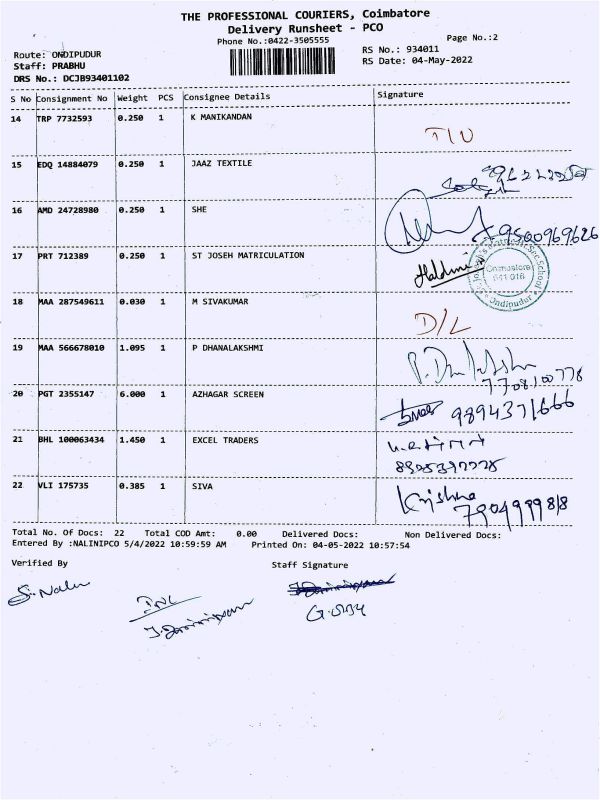 THE PROFESSIONAL COURIERS, Coimbatore
Delivery Runsheet - PCO
Phone No.:0422-3505555
Page No.:2
Route: ONDIPUDUR
RS No.: 934011
Staff: PRABHU
RS Date: 04-May-2022
DRS No.: DCJB93401102
S No Consignment No Weight PCS Consignee Details Signature
14 TRP 7732593 0.250 1 K MANIKANDAN
15 EDQ 14884079 0.250 1 JAAZ TEXTILE
16 AMD 24728980 0.250 1 SHE
9500969626
17 PRT 712389 0.250 1 ST JOSEH MATRICULATION
Coimbatore
641 016
18 MAA 287549611 0.030 1 M SIVAKUMAR D/L
19 MAA 566678010 1.095 1 P DHANALAKSHMI
7708100778
20 PGT 2355147 6.000 1 AZHAGAR SCREEN 9894371666
21 BHL 100063434 1.450 1 EXCEL TRADERS
22 VLI 175735 0.385 1 SIVA Krishna
7904999818
Total No. Of Docs: 22 Total COD Amt: 0.00 Delivered Docs: Non Delivered Docs:
Entered By :NALINIPCO 5/4/2022 10:59:59 AM Printed On: 04-05-2022 10:57:54
Verified By Staff Signature
S. Nalu